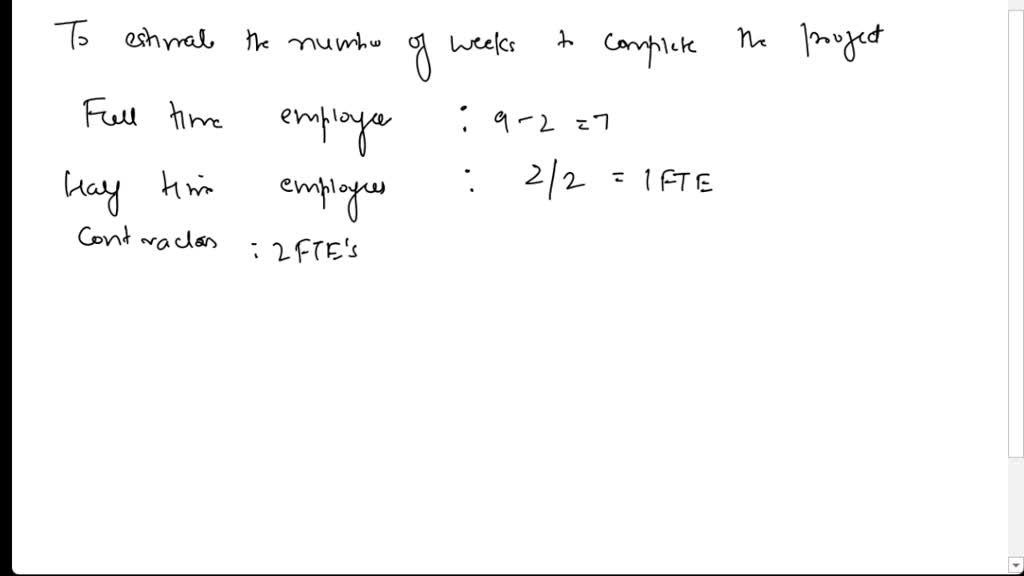 To estimate the number of weeks to complete the project
Full time employee : 9-2 =7
Half time employees : 2/2 = 1 FTE
Contractors : 2 FTE's